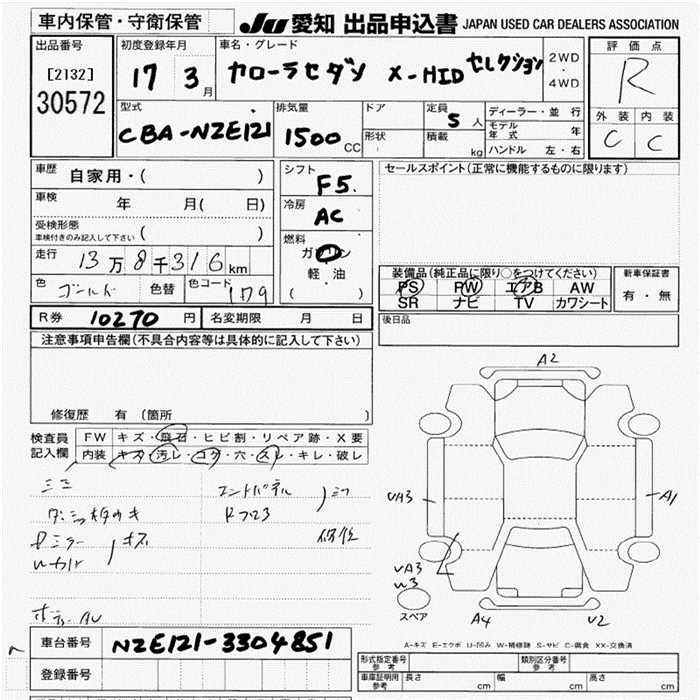 車内保管・守衛保管
JU 愛知 出品申込書 JAPAN USED CAR DEALERS ASSOCIATION
出品番号
[2132]
30572
初度登録年月
17 3月
車名・グレード
カローラセダン X-HID セレクション
2WD
・
4WD
評価点
R
外装 内装
C C
型式
CBA-NZE121
排気量
1500 CC
ドア
形状
定員
5 人
積載
kg
ディーラー・並行
モデル年式 年
ハンドル 左・右
車歴 自家用・( )
車検 年 月( 日)
受検形態
車検付きのみ記入して下さい ( )
走行 13万8千316km
色 ゴールド 色替 色コード 179
シフト
F5.
冷房
AC
燃料
ガソリン
軽油
( )
セールスポイント(正常に機能するものに限ります)
装備品(純正品に限り○をつけてください)
PS PW エアB AW
SR ナビ TV カワシート
新車保証書
有・無
R券 10270 円 名変期限 月 日
後日品
注意事項申告欄(不具合内容等は具体的に記入して下さい)
修復歴 有 (箇所 )
検査員記入欄
FW キズ・飛石・ヒビ割・リペア跡・X要
内装 キズ・汚レ・コゲ・穴・スレ・キレ・破レ
キズ
修復
A2
UA3
A1
UA3
W3
スペア
A4
U2
A-キズ E-エクボ U-凹み W-補修跡 S-サビ C-腐食 XX-交換済
車台番号 NZE121-3304851
登録番号
形式指定番号
参考
類別区分番号
参考
車庫証明用
参考
長さ cm 幅 cm 高さ cm